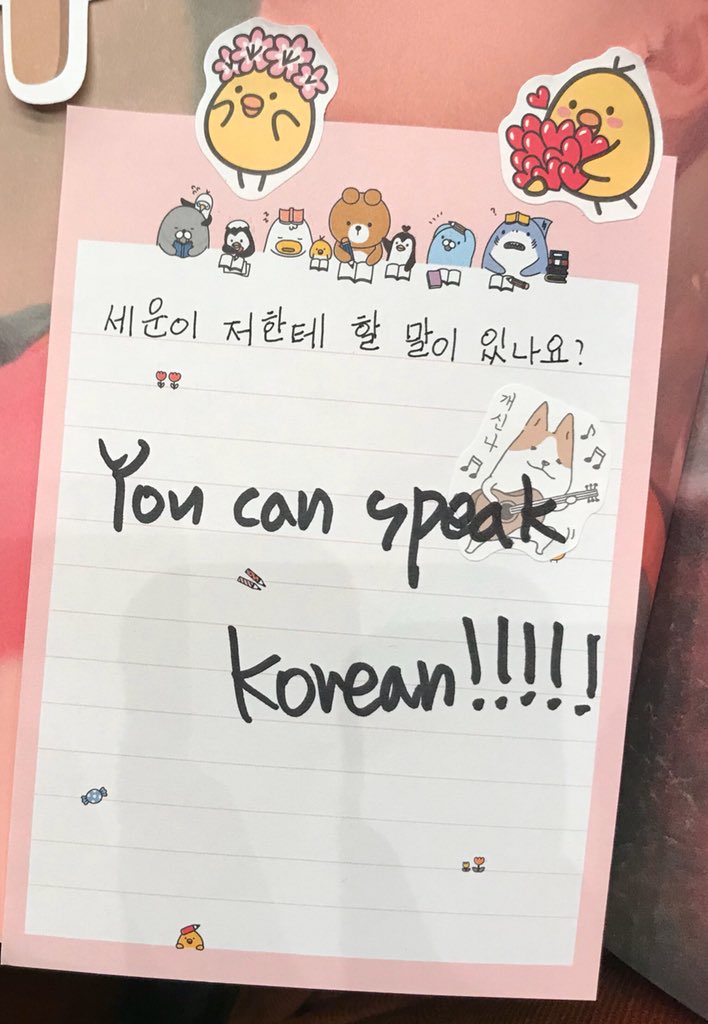 세운이 저한테 할 말이 있나요?
개신나
You can speak
korean!!!!!